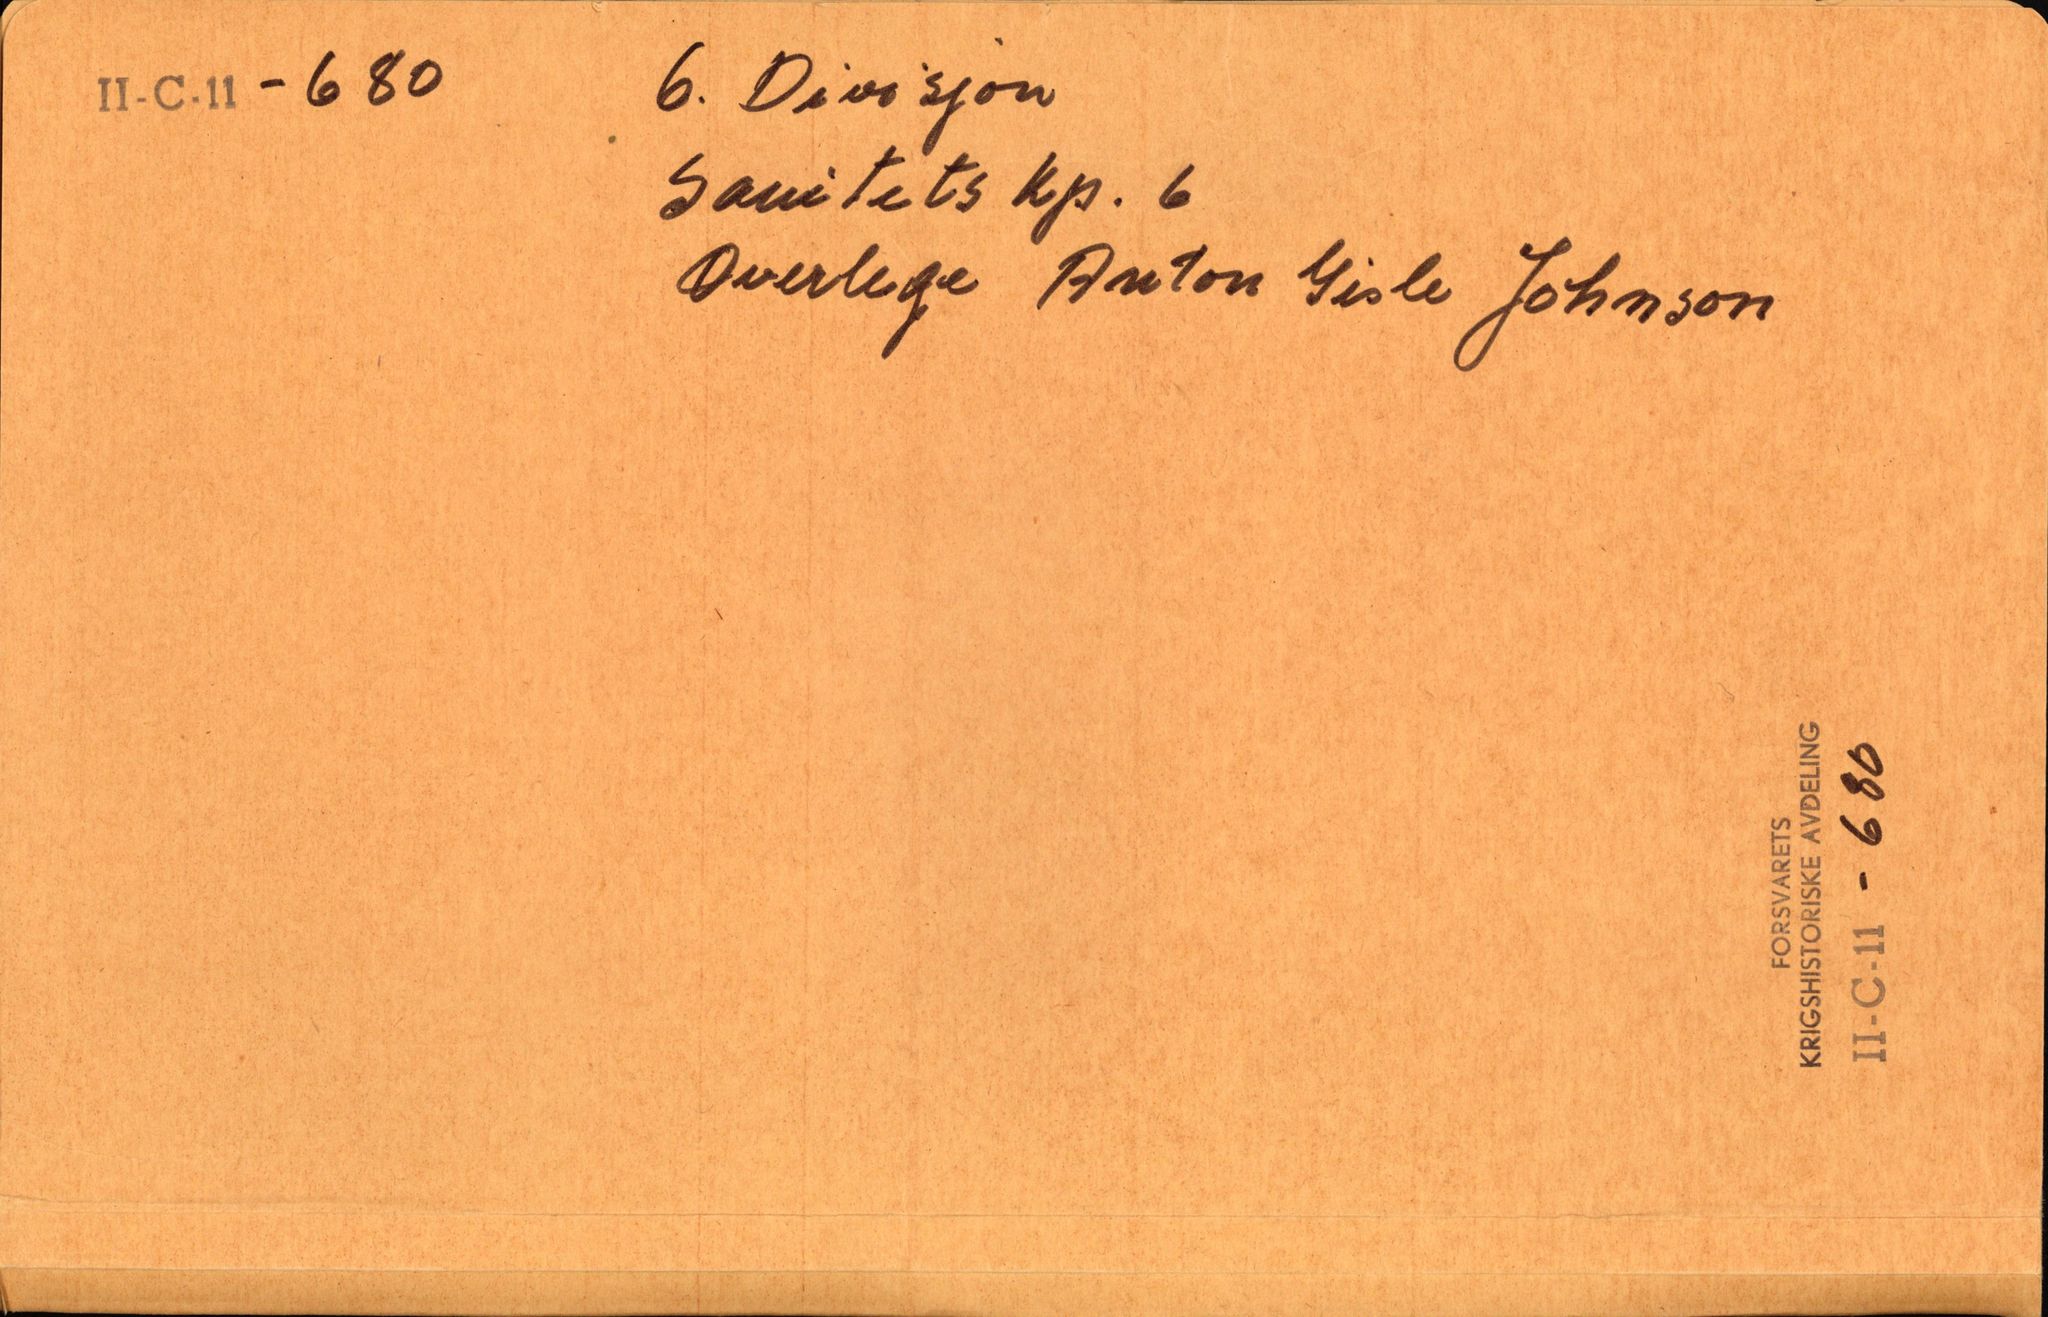 II-C-11 - 680
6. Divisjon
Sanitets kp. 6
Overlege Anton Gisle Johnson
FORSVARETS
KRIGSHISTORISKE AVDELING
II-C-11 - 680